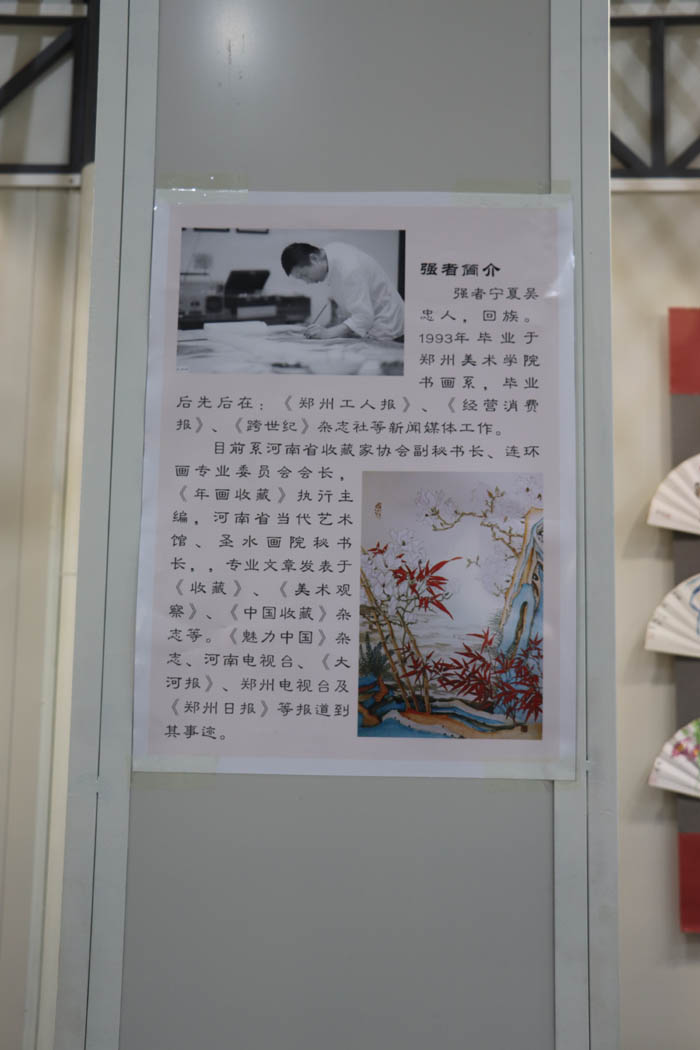 强者简介
强者宁夏吴
忠人，回族。
1993年毕业于
郑州美术学院
书画系，毕业
后先后在：《郑州工人报》、《经营消费
报》、《跨世纪》杂志社等新闻媒体工作。
目前系河南省收藏家协会副秘书长、连环
画专业委员会会长，
《年画收藏》执行主
编，河南省当代艺术
馆、圣水画院秘书
长，，专业文章发表于
《收藏》、《美术观
察》、《中国收藏》杂
志等。《魅力中国》杂
志、河南电视台、《大
河报》、郑州电视台及
《郑州日报》等报道到
其事迹。